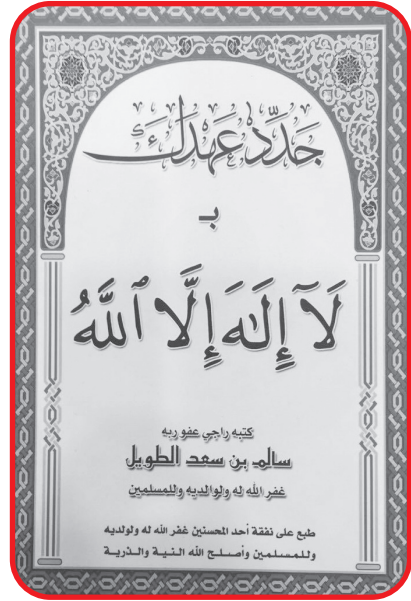 جَدِّدْ عَهْدَكَ
بـ
لَآ إِلَٰهَ إِلَّا ٱللَّهُ
كتبه راجي عفو ربه
سالم بن سعد الطويل
غفر الله له ولوالديه وللمسلمين
طبع على نفقة أحد المحسنين غفر الله له ولولديه
وللمسلمين وأصلح الله النية والذرية